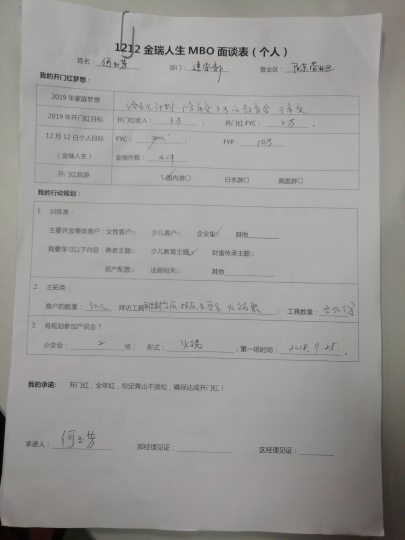 1212金瑞人生MBO面谈表（个人）
姓名： 何玉芳 部门： 营业区：
我的开门红梦想：
2019年家庭梦想
2019年开门红目标 开门红收入： 3万 ； 开门红FYC： 2万 .
12月12日个人目标 FYC： ； FYP： 10万
（金瑞人生） 金瑞件数： 4件
开门红旅游 国内游□ 日本游□ 美国游□
我的行动规划：
1. 训练类：
主要开发哪类客户：女性客户□ 少儿客户□ 企业主 其他
我要学习以下内容：养老主题□ 少儿教育主题 财富传承主题□
资产配置□ 法商相关□ 其他
2. 主拓类：
客户的数量： 30人 拜访工具 ； 工具数量：
3. 有规划参加产说会？
小交会： 2 场； 形式： 火锅 ；第一场时间： 2018.11.25.
我的承诺： 开门红，全年红，咬定青山不放松，确保达成开门红！
承诺人： 何玉芳 部经理见证： 区经理见证：